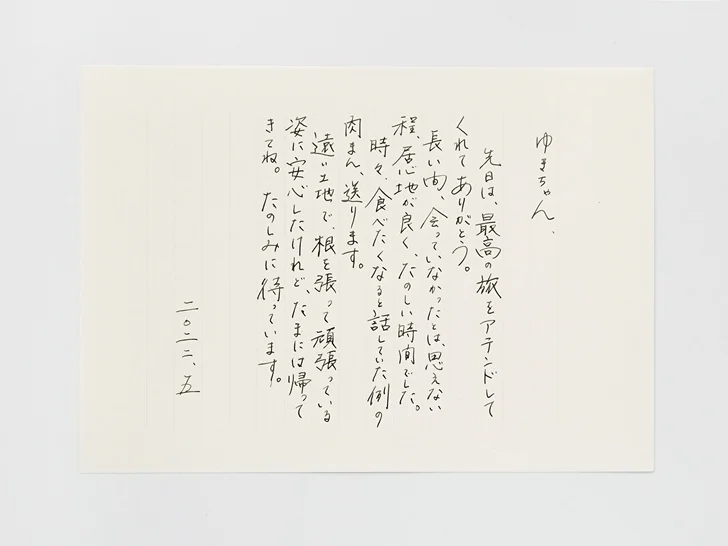 ゆきちゃん、
先日は、最高の旅をアテンドして
くれてありがとう。
長い間、会っていなかったとは、思えない
程、居心地が良く、たのしい時間でした。
時々、食べたくなると話していた例の
肉まん、送ります。
遠い土地で、根を張って頑張っている
姿に安心したけれど、たまには帰って
きてね。たのしみに待っています。
二〇二二、五